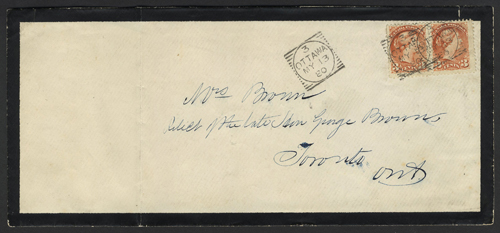 3
OTTAWA
MY 13
80
Mrs Brown
Relict of the late Hon George Brown
Toronto
Ont